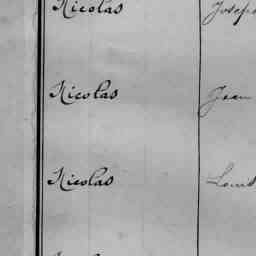 Nicolas Joseph
Nicolas Jean
Nicolas Louis